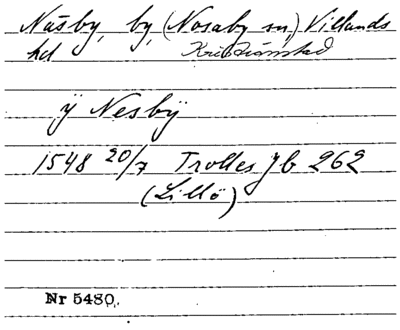 Näsby, by, (Nosaby sn,) Villands
hd Kristianstad
ÿ Nesbÿ
1548 20/7 Trolles Jb 262
(Lillö)
Nr 5480.